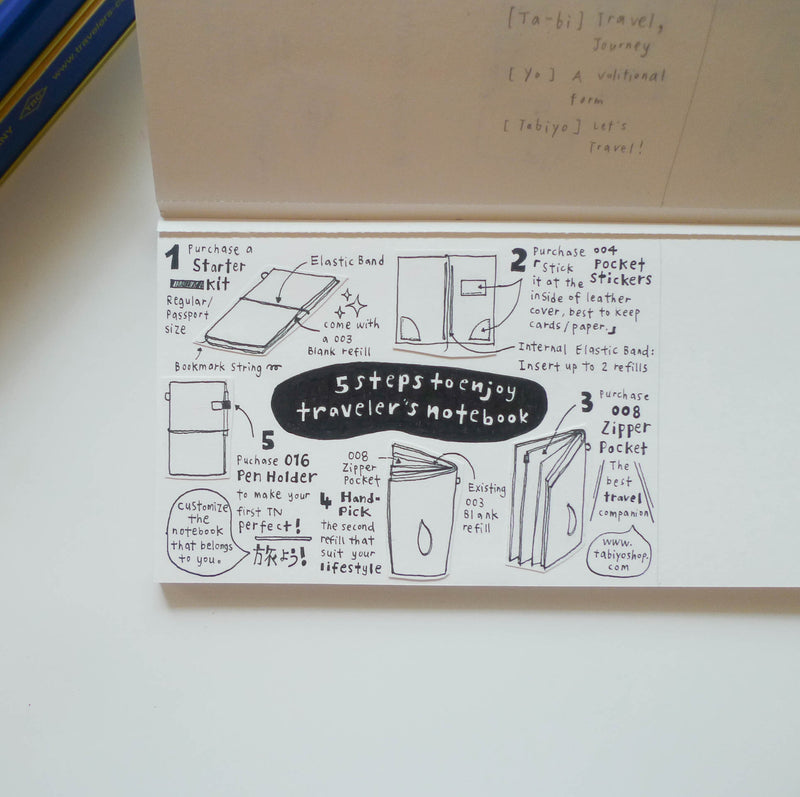 www.travelers-c
TRC
ANY
[Ta-bi] Travel,
Journey
[Yo] A volitional
form
[Tabiyo] Let's
Travel!
5 steps to enjoy
traveler's notebook
1 Purchase a
Starter
Kit
Regular/
Passport
size
Elastic Band
come with
a 003
Blank refill
Bookmark String
2 Purchase 004
Pocket
Stickers
Stick
it at the
inside of leather
cover, best to keep
cards/paper.
Internal Elastic Band:
Insert up to 2 refills
3 Purchase
008
Zipper
Pocket
The
best
travel
companion
www.
tabiyoshop.
com
008
Zipper
Pocket
Existing
003
Blank
refill
4 Hand-
Pick
the second
refill that
suit your
lifestyle
5
Puchase 016
Pen Holder
to make your
first TN
perfect!
旅よう!
Customize
the
notebook
that belongs
to you.